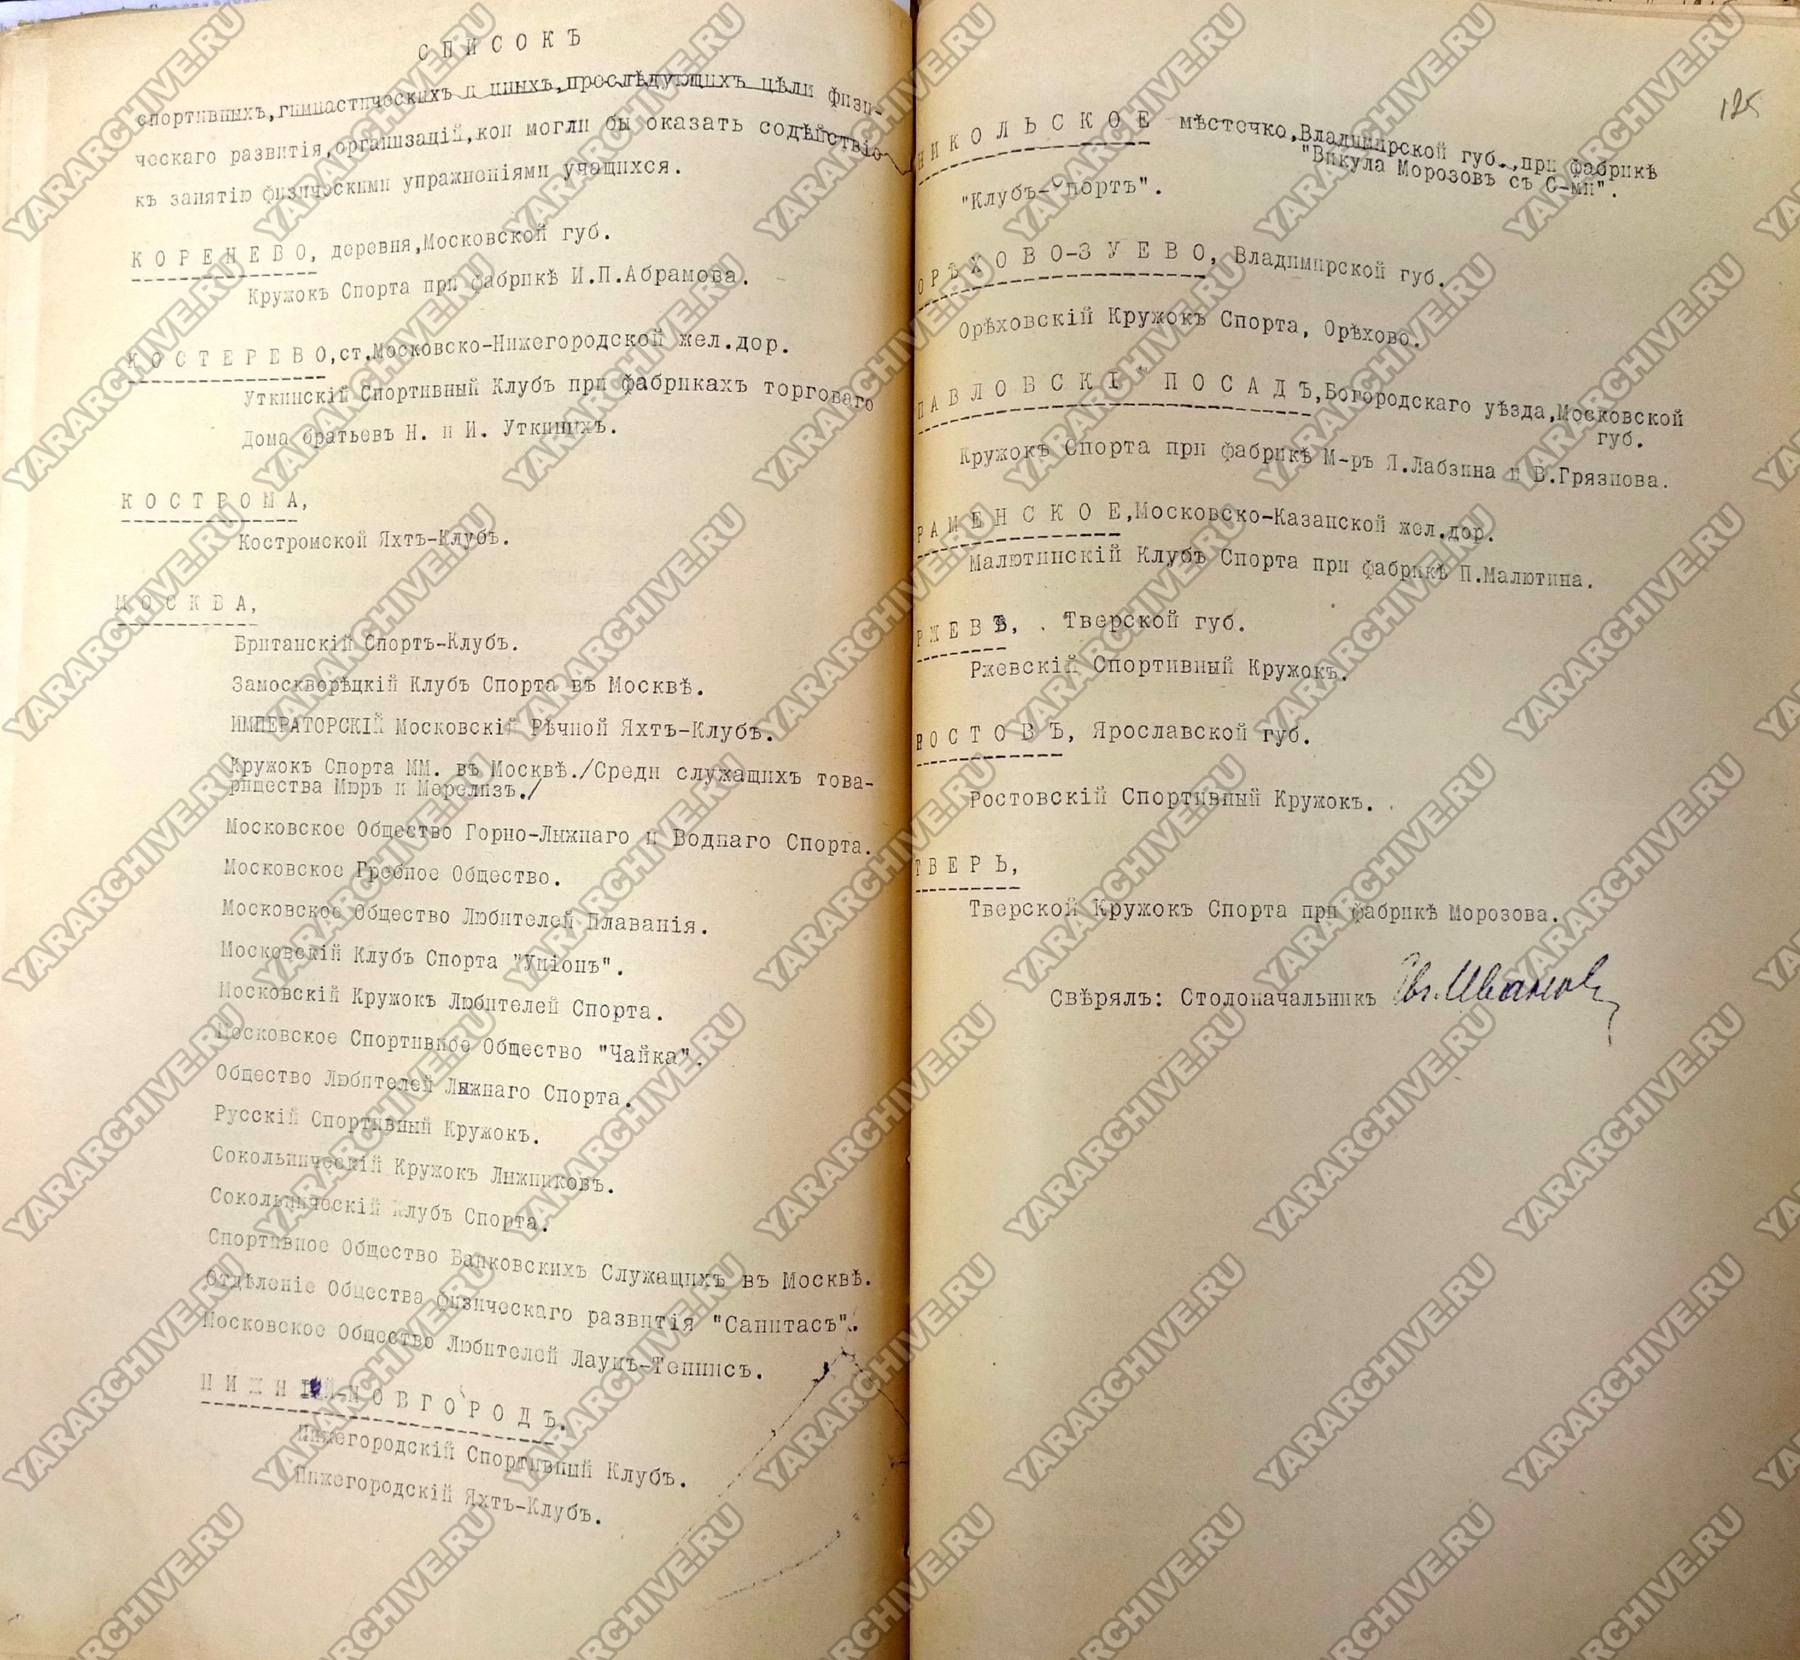 СПИСОКЪ
спортивныхъ,гимнастическихъ и иныхъ,прослѣдующихъ цѣли физи-
ческаго развитія,организацій,кои могли бы оказать содѣйствіе
къ занятію физическими упражненіями учащихся.
КОРЕНЕВО, деревня,Московской губ.
Кружокъ Спорта при фабрикѣ И.П.Абрамова.
КОСТЕРЕВО,ст.Московско-Нижегородской жел.дор.
Уткинскій Спортивный Клубъ при фабрикахъ торговаго
Дома братьевъ Н. и И. Уткиныхъ.
КОСТРОМА,
Костромской Яхтъ-Клубъ.
МОСКВА,
Британскій Спортъ-Клубъ.
Замоскворѣцкій Клубъ Спорта въ Москвѣ.
ИМПЕРАТОРСКІЙ Московскій Рѣчной Яхтъ-Клубъ.
Кружокъ Спорта ММ. въ Москвѣ./Среди служащихъ това-
рищества Мюръ и Мерелизъ./
Московское Общество Горно-Лыжнаго и Воднаго Спорта.
Московское Гребное Общество.
Московское Общество Любителей Плаванія.
Московскій Клубъ Спорта "Уніонъ".
Московскій Кружокъ Любителей Спорта.
Московское Спортивное Общество "Чайка".
Общество Любителей Лыжнаго Спорта.
Русскій Спортивный Кружокъ.
Сокольническій Кружокъ Лыжниковъ.
Сокольническій Клубъ Спорта.
Спортивное Общество Банковскихъ Служащихъ въ Москвѣ.
Отдѣленіе Общества физическаго развитія "Санитасъ".
Московское Общество Любителей Лаунъ-Теннисъ.
НИЖНІЙ-НОВГОРОДЪ.
Нижегородскій Спортивный Клубъ.
Нижегородскій Яхтъ-Клубъ.
125
НИКОЛЬСКОЕ мѣстечко,Владимирской губ.,при фабрикѣ
"Викула Морозовъ съ С-ми".
"Клубъ-Спортъ".
ОРѢХОВО-ЗУЕВО, Владимирской губ.
Орѣховскій Кружокъ Спорта, Орѣхово.
ПАВЛОВСКІЙ ПОСАДЪ,Богородскаго уѣзда,Московской
губ.
Кружокъ Спорта при фабрикѣ М-ръ Я.Лабзина и В.Грязнова.
РАМЕНСКОЕ,Московско-Казанской жел.дор.
Малютинскій Клубъ Спорта при фабрикѣ П.Малютина.
РЖЕВЪ, Тверской губ.
Ржевскій Спортивный Кружокъ.
РОСТОВЪ, Ярославской губ.
Ростовскій Спортивный Кружокъ.
ТВЕРЬ,
Тверской Кружокъ Спорта при фабрикѣ Морозова.
Свѣрялъ: Столоначальникъ Иванов
YARARCHIVE.RU